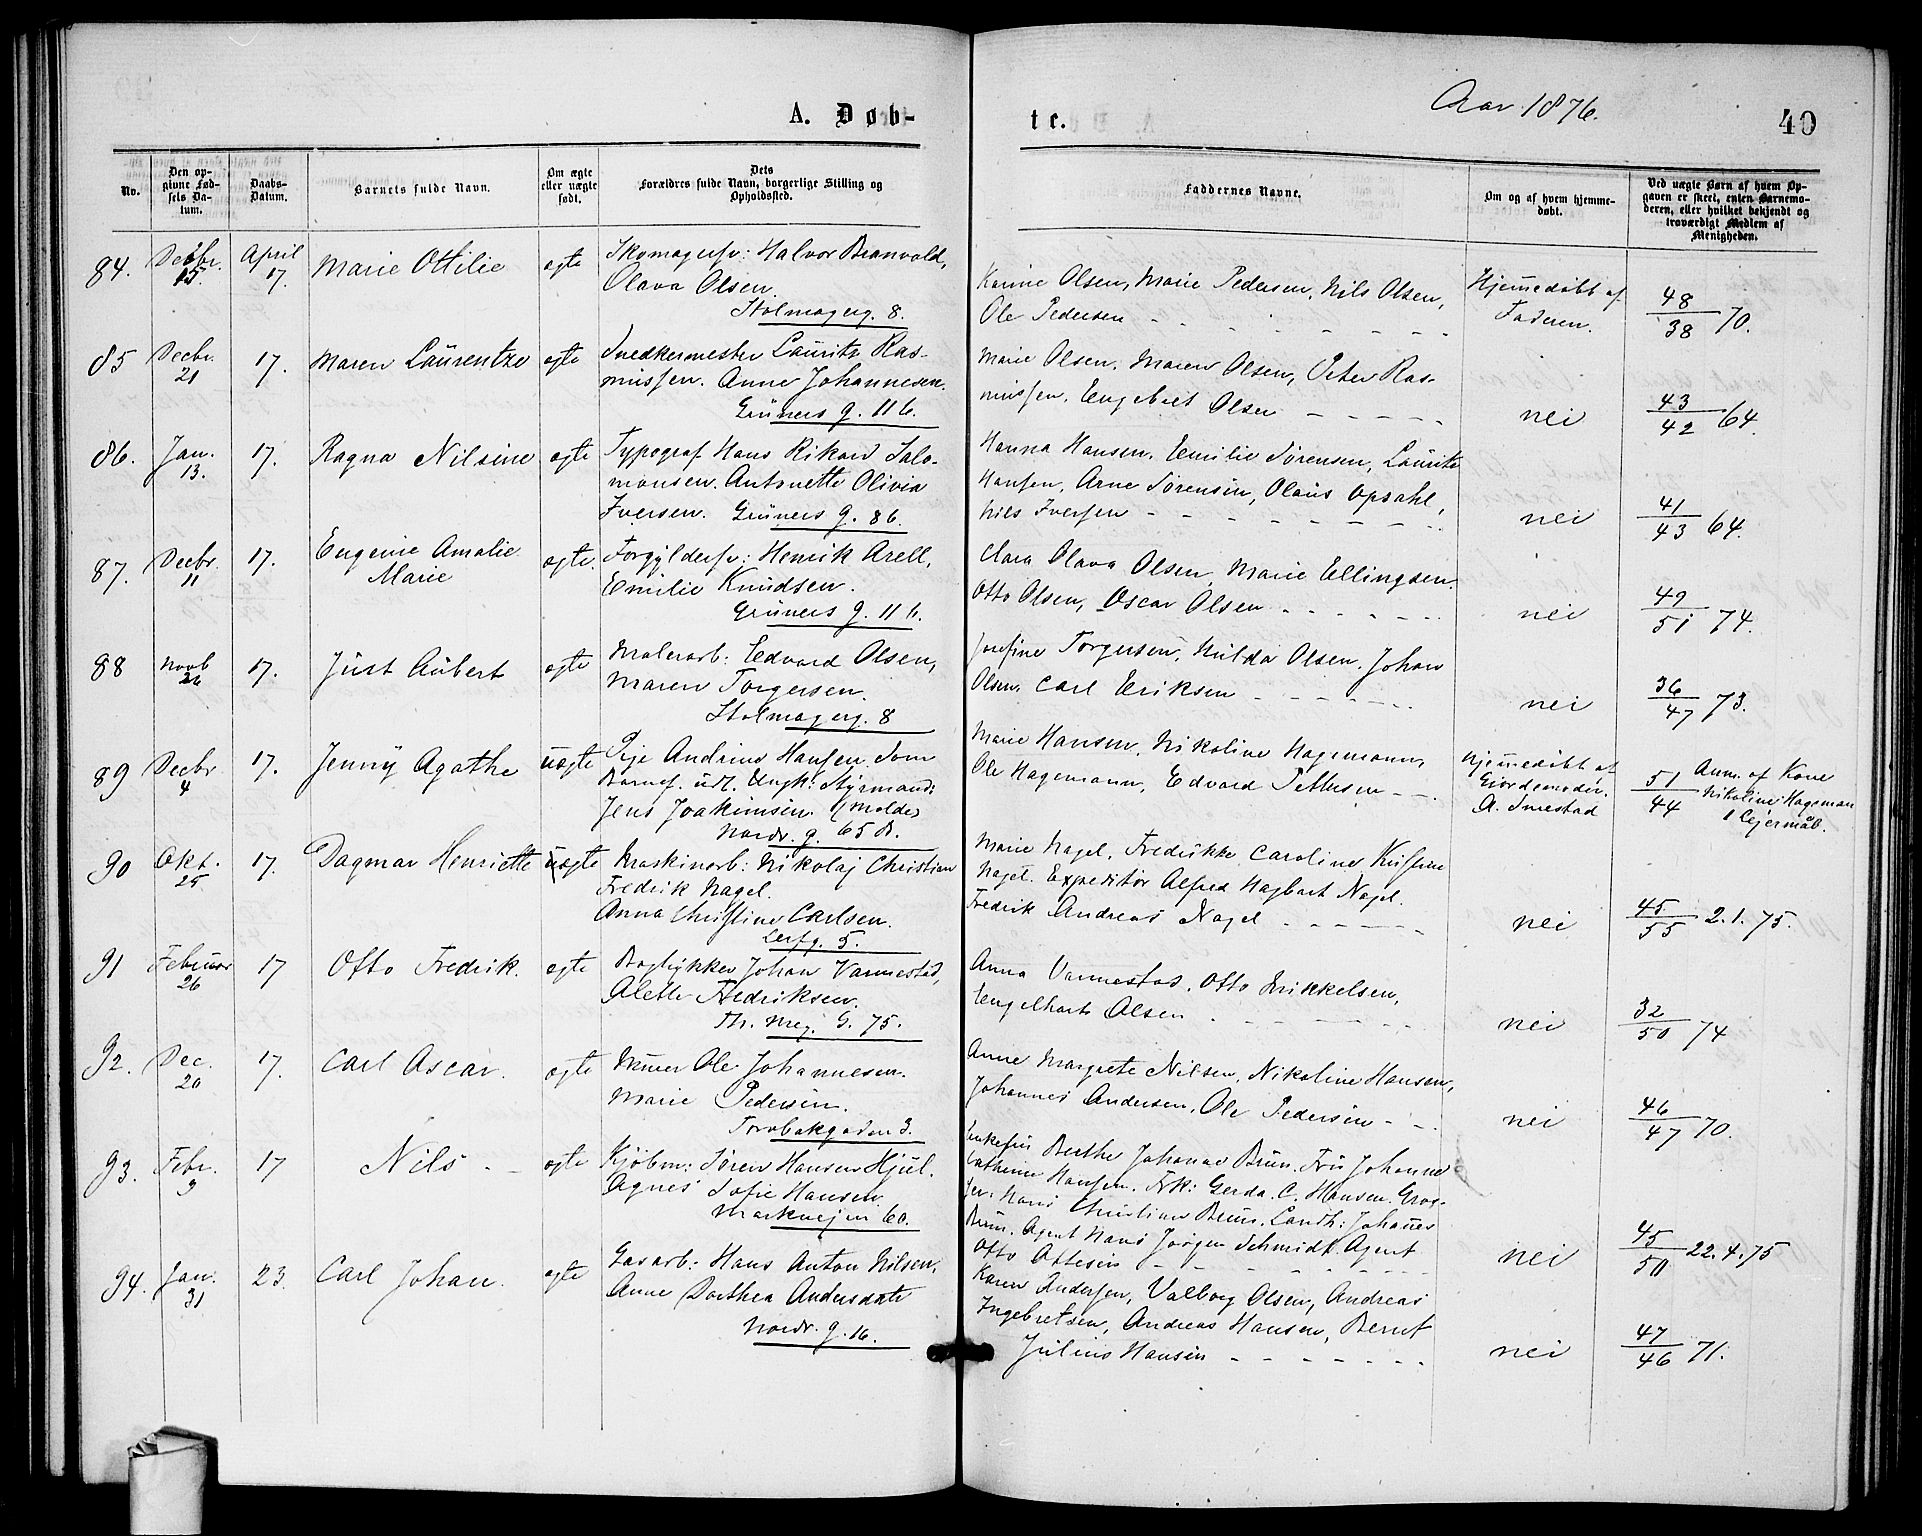 A. Døb-
te.
Aar 1876.
40
No.
Den opgivne Fødsels Datum.
Daabs-Datum.
Barnets fulde Navn.
Om ægte eller uægte født.
Dets Forældres fulde Navn, borgerlige Stilling og Opholdssted.
Faddernes Navne.
Om og af hvem hjemmedøbt.
Ved uægte Børn af hvem Opgaven er skeet, enten Barnemoderen, eller hvilket bekjendt og troværdigt Medlem af Menigheden.
84. Decbr. 15. April 17. Marie Ottilie ægte Skomagersv: Halvor Branvold,
Olava Olsen.
Stolmagerg. 8.
Karine Olsen, Marie Pedersen, Nils Olsen,
Ole Pedersen
Hjemmedøbt af
Faderen.
48/38 70.
85 Decbr. 21 17. Maren Laurentze ægte Snedkermester Lauritz Ras-
mussen. Anne Johannesen.
Grüners g. 11 b.
Marie Olsen, Maren Olsen, Peter Ras-
mussen, Engebret Olsen
nei
43/42 64.
86. Jan. 13. 17. Ragna Nilsine ægte Typograf Hans Rikard Salo-
monsen. Antonette Olivia
Iversen. Grüners g. 8 b.
Hanna Hansen, Emilie Sørensen, Lauritz
Hansen, Arne Sørensen, Olaus Opsahl,
Nils Iversen
nei
41/43 64.
87. Decbr. 11 17. Eugenie Amalie
Marie
ægte. Forgyldersv: Henrik Arell,
Emilie Knudsen.
Grüners g. 11 b.
Clara Olava Olsen, Marie Ellingsen.
Otto Olsen, Oscar Olsen
nei
49/51 74.
88 Novb 26 17. Just Aubert ægte Malerarb: Edvard Olsen,
Maren Torgersen.
Stolmagerg. 8
Josefine Torgersen, Hulda Olsen, Johan
Olsen, Carl Eriksen
nei
36/47 73.
89 Decbr 4 17. Jenny Agathe uægte Pige Andrine Hansen. Som
Barnef. udl. Ungk: Styrmand:
Jens Joakimsen. (Molde)
Nordr. g. 65 B.
Marie Hansen, Nikoline Hagemann,
Ole Hagemann, Edvard Pettersen
Hjemmedøbt af
Giordemoder.
A. Smestad
51/44 Anm. af Kone
Nikoline Hageman
i Leiermål.
90 Okt. 25 17. Dagmar Henriette uægte Maskinarb: Nikolaj Christian
Fredrik Nagel.
Anna Christine Carlsen.
Lerfg. 5.
Marie Nagel, Fredrikke Caroline
Nagel. Expeditør Alfred Hagbart Nagel.
Fredrik Andreas Nagel
nei
45/55 2.1.75.
91 Februar 26 17 Otto Fredrik. ægte Bogtykker Johan Vannestad,
Alette Fredriksen.
Th. Mey. G. 75.
Anna Vannestad, Otto Mikkelsen,
Engelhart Olsen
nei
32/50 74
92. Dec. 20 17. Carl Ascar. ægte Murer Ole Johannesen.
Marie Pedersen.
Torvbakgaden 3.
Anne Margrete Nilsen, Nikoline Hansen,
Johannes Andersen, Ole Pedersen
nei
46/47 70.
93. Febr. 9 17 Nils ægte Kjøbm: Søren Hansen Hjul.
Agnes Sofie Hansen
Markvejen 60.
Enkefru Berthe Johanne Brun, Fru Johanne
Cathrine Hansen. Frk: Gerda. C. Hansen. Gros-
ser: Hans Christian Brun. Candt: Johanes
Brun. Agent Hans Jørgen Schmidt. Agent
Otto Ottesen
nei
45/50 22.4.75
94. Jan. 31 23. Carl Johan. ægte Gasarb: Hans Anton Nilsen,
Anne Dorthea Andersdatr
Nordr. g. 16.
Karen Andersen, Valborg Olsen, Andreas
Ingebretsen, Andreas Hansen, Bernt
Julius Hansen
nei
47/46 71.